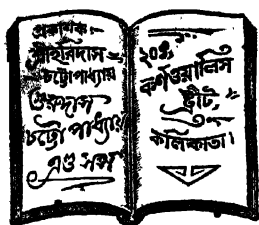 প্রকাশক:
শ্রীহরিদাস
চট্টোপাধ্যায়
গুরুদাস
চট্টোপাধ্যায়
এণ্ড সন্স
কর্ণওয়ালিস
ষ্ট্রীট,
কলিকাতা।